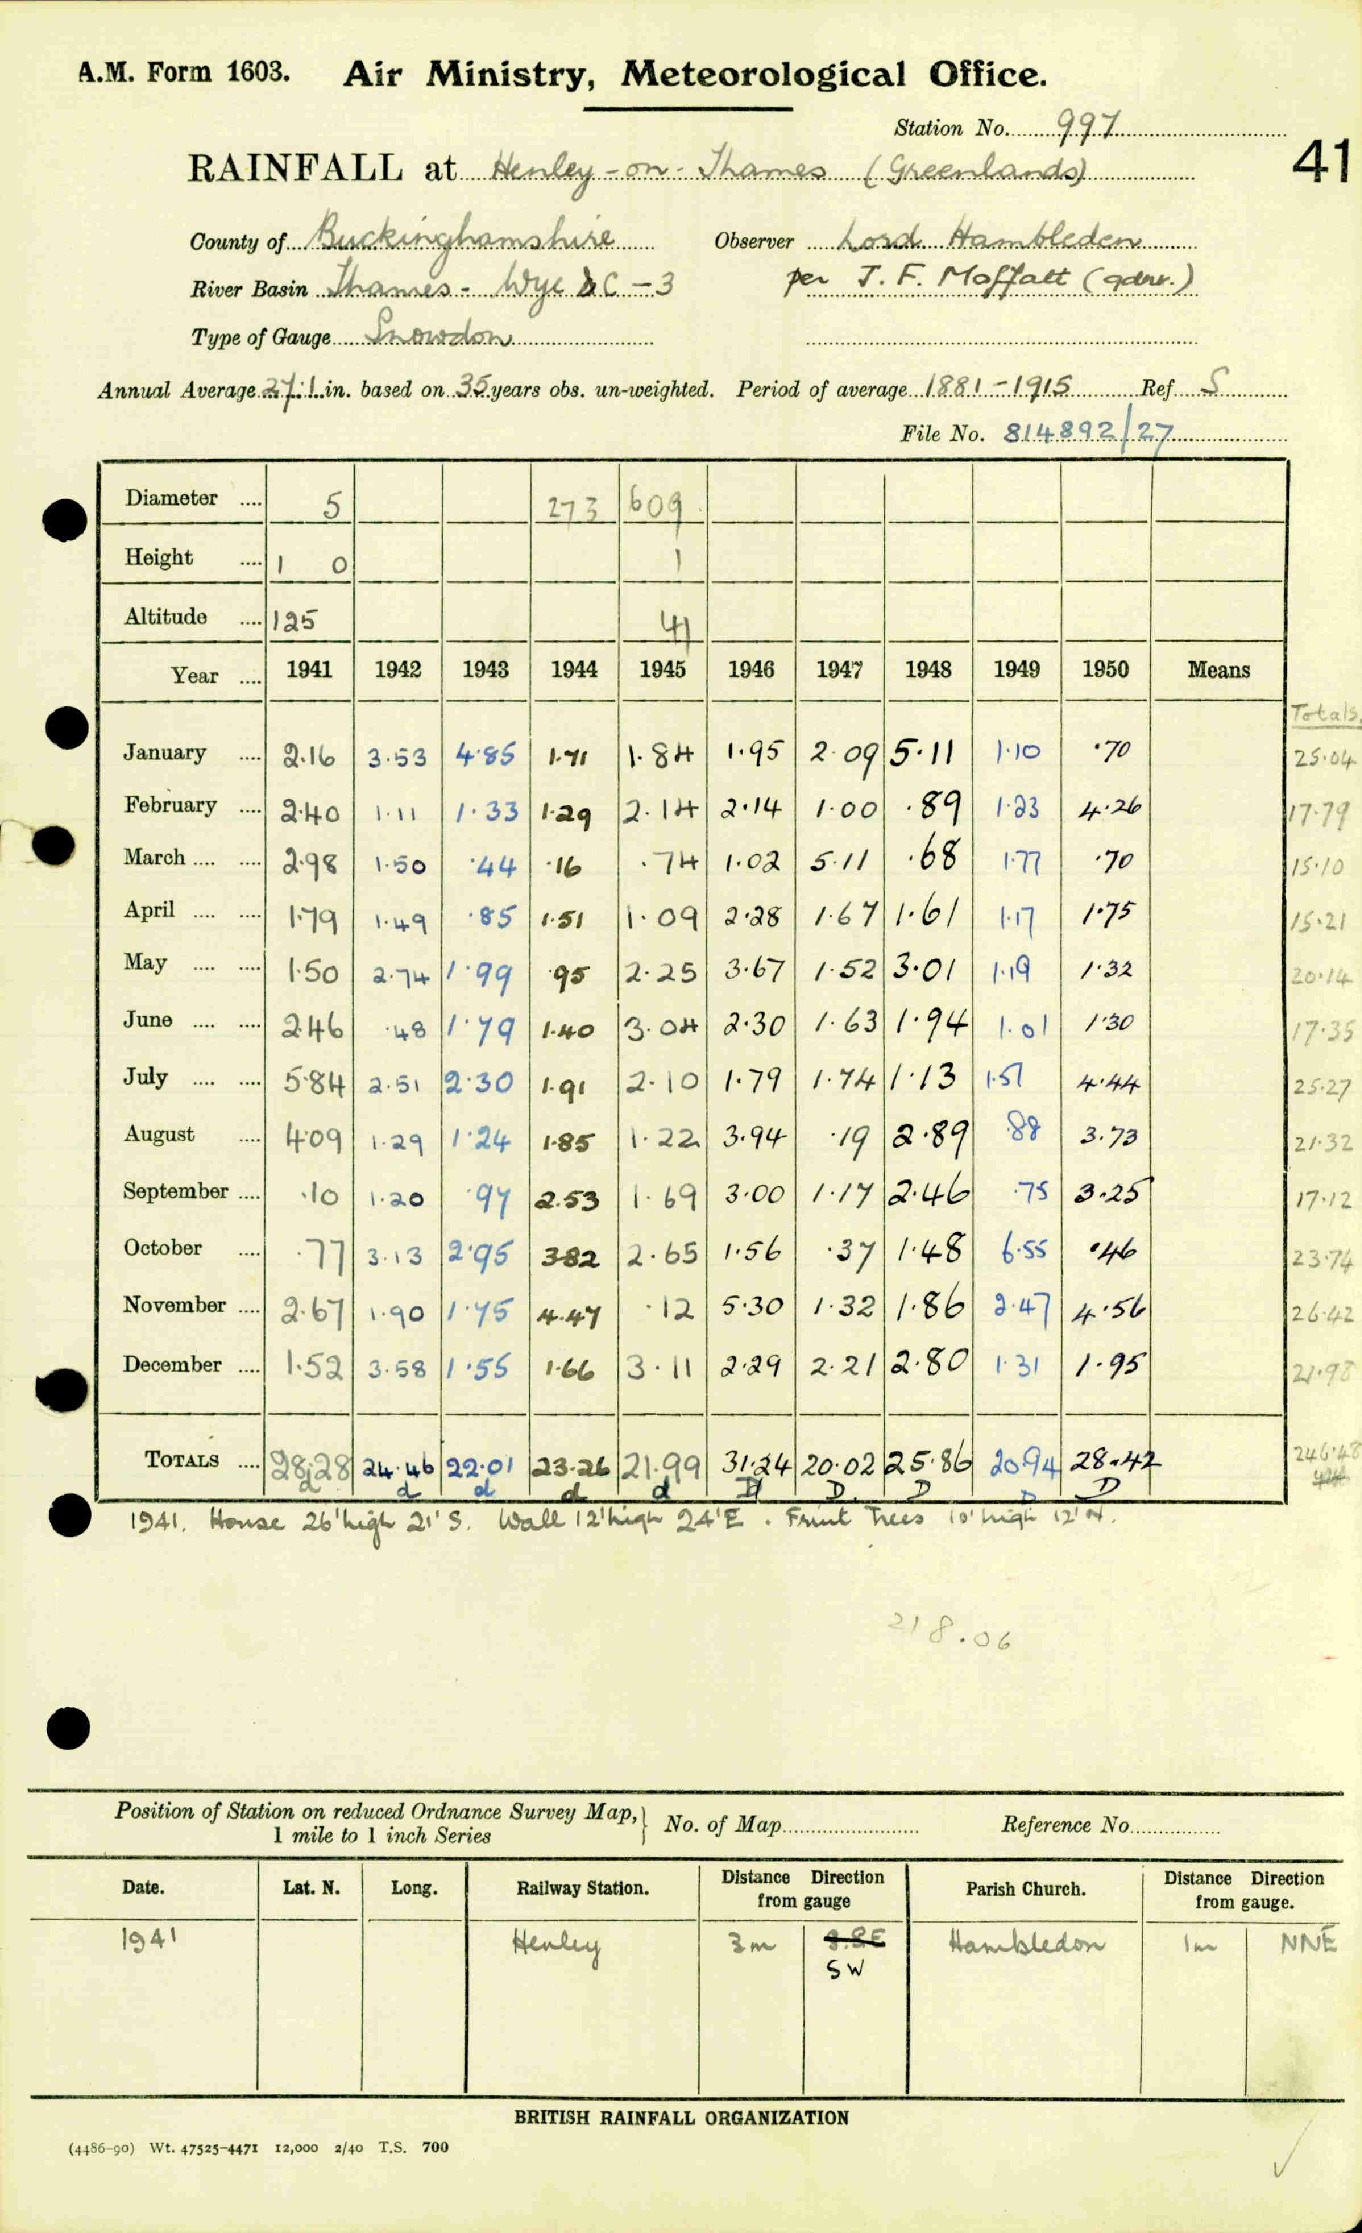 A.M. Form 1603. Air Ministry, Meteorological Office.
Station No. 997
41
RAINFALL at Henley-on-Thames (Greenlands)
County of Buckinghamshire Observer Lord Hambleden
River Basin Thames - Wye & C - 3 per J. F. Moffatt (gdnr.)
Type of Gauge Snowdon
Annual Average 27.1 in. based on 35 years obs. un-weighted. Period of average 1881-1915 Ref S
File No. 814892/27
Diameter .... 5 273 609
Height .... 1 0 1
Altitude .... 125 41
Year .... 1941 1942 1943 1944 1945 1946 1947 1948 1949 1950 Means
Totals.
January .... 2.16 3.53 4.85 1.71 1.84 1.95 2.09 5.11 1.10 .70 25.04
February .... 2.40 1.11 1.33 1.29 2.14 2.14 1.00 .89 1.23 4.26 17.79
March .... .... 2.98 1.50 .44 .16 .74 1.02 5.11 .68 1.77 .70 15.10
April .... .... 1.79 1.49 .85 1.51 1.09 2.28 1.67 1.61 1.17 1.75 15.21
May .... .... 1.50 2.74 1.99 .95 2.25 3.67 1.52 3.01 1.19 1.32 20.14
June .... .... 2.46 .48 1.79 1.40 3.04 2.30 1.63 1.94 1.01 1.30 17.35
July .... .... 5.84 2.51 2.30 1.91 2.10 1.79 1.74 1.13 1.51 4.44 25.27
August .... 4.09 1.29 1.24 1.85 1.22 3.94 .19 2.89 .88 3.73 21.32
September .... .10 1.20 .97 2.53 1.69 3.00 1.17 2.46 .75 3.25 17.12
October .... .77 3.13 2.95 3.82 2.65 1.56 .37 1.48 6.55 .46 23.74
November .... 2.67 1.90 1.75 4.47 .12 5.30 1.32 1.86 2.47 4.56 26.42
December .... 1.52 3.58 1.55 1.66 3.11 2.29 2.21 2.80 1.31 1.95 21.98
TOTALS .... 28.28 24.46 22.01 23.26 21.99 31.24 20.02 25.86 20.94 28.42 246.48
d d d d d D D D D D
1941. House 26' high 21' S. Wall 12' high 24' E. Fruit Trees 10' high 12' N.
218.06
Position of Station on reduced Ordnance Survey Map, 1 mile to 1 inch Series } No. of Map Reference No.
Date. Lat. N. Long. Railway Station. Distance Direction from gauge Parish Church. Distance Direction from gauge.
1941 Henley 3m S.S.E Hambledon 1m NNE
SW
BRITISH RAINFALL ORGANIZATION
(4486-90) Wt. 47525-4471 12,000 2/40 T.S. 700